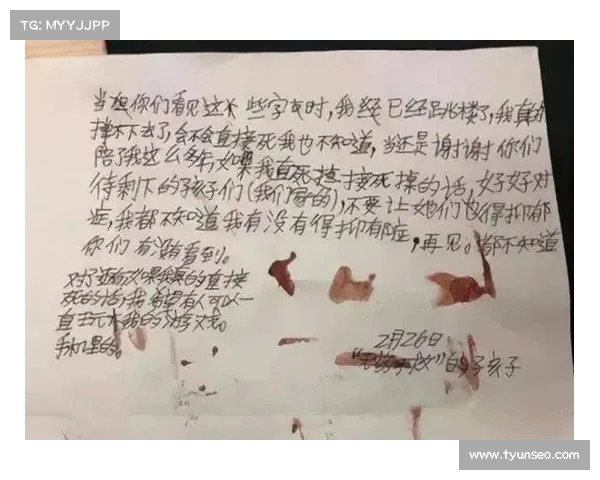 TG: MYYJJPP
当想你们看见这些字文时，我经已经跳楼了，我真
撑不下去了，会不会直接死我也不知道，当还是谢谢你们
陪了我这么多年，如果我直死接死掉的话，好好对
待剩下的孩子们（我们家的），不要让她们也得抑郁
症，我都不知道我有没有得抑郁症，再见。都不知道
你们有没有看到。
对了还有如果我真的直接
死的话，我希望有人可以一
直玩我的游戏。
手机里的。
2月26日
的孩子
www.tyunseo.com